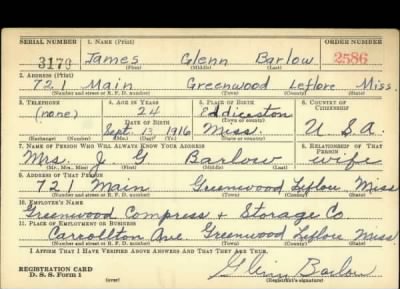 SERIAL NUMBER 1. NAME (Print) ORDER NUMBER
3179 James Glenn Barlow 2586
(First) (Middle) (Last)
2. ADDRESS (Print)
721 Main Greenwood Leflore Miss.
(Number and street or R. F. D. number) (Town) (County) (State)
3. TELEPHONE 4. AGE IN YEARS 5. PLACE OF BIRTH 6. COUNTRY OF CITIZENSHIP
(none) 24 Eddiceton
DATE OF BIRTH (Town or county)
Sept. 13, 1916 Miss. U S A.
(Exchange) (Number) (Mo.) (Day) (Yr.) (State or country)
7. NAME OF PERSON WHO WILL ALWAYS KNOW YOUR ADDRESS 8. RELATIONSHIP OF THAT PERSON
Mrs. J. G Barlow wife
(Mr., Mrs., Miss) (First) (Middle) (Last)
9. ADDRESS OF THAT PERSON
721 Main Greenwood Leflore Miss
(Number and street or R. F. D. number) (Town) (County) (State)
10. EMPLOYER'S NAME
Greenwood Compress + Storage Co.
11. PLACE OF EMPLOYMENT OR BUSINESS
Carrollton Ave. Greenwood Leflore Miss
(Number and street or R. F. D. number) (Town) (County) (State)
I AFFIRM THAT I HAVE VERIFIED ABOVE ANSWERS AND THAT THEY ARE TRUE.
REGISTRATION CARD
D. S. S. Form 1 (over) Glenn Barlow
(Registrant's signature)